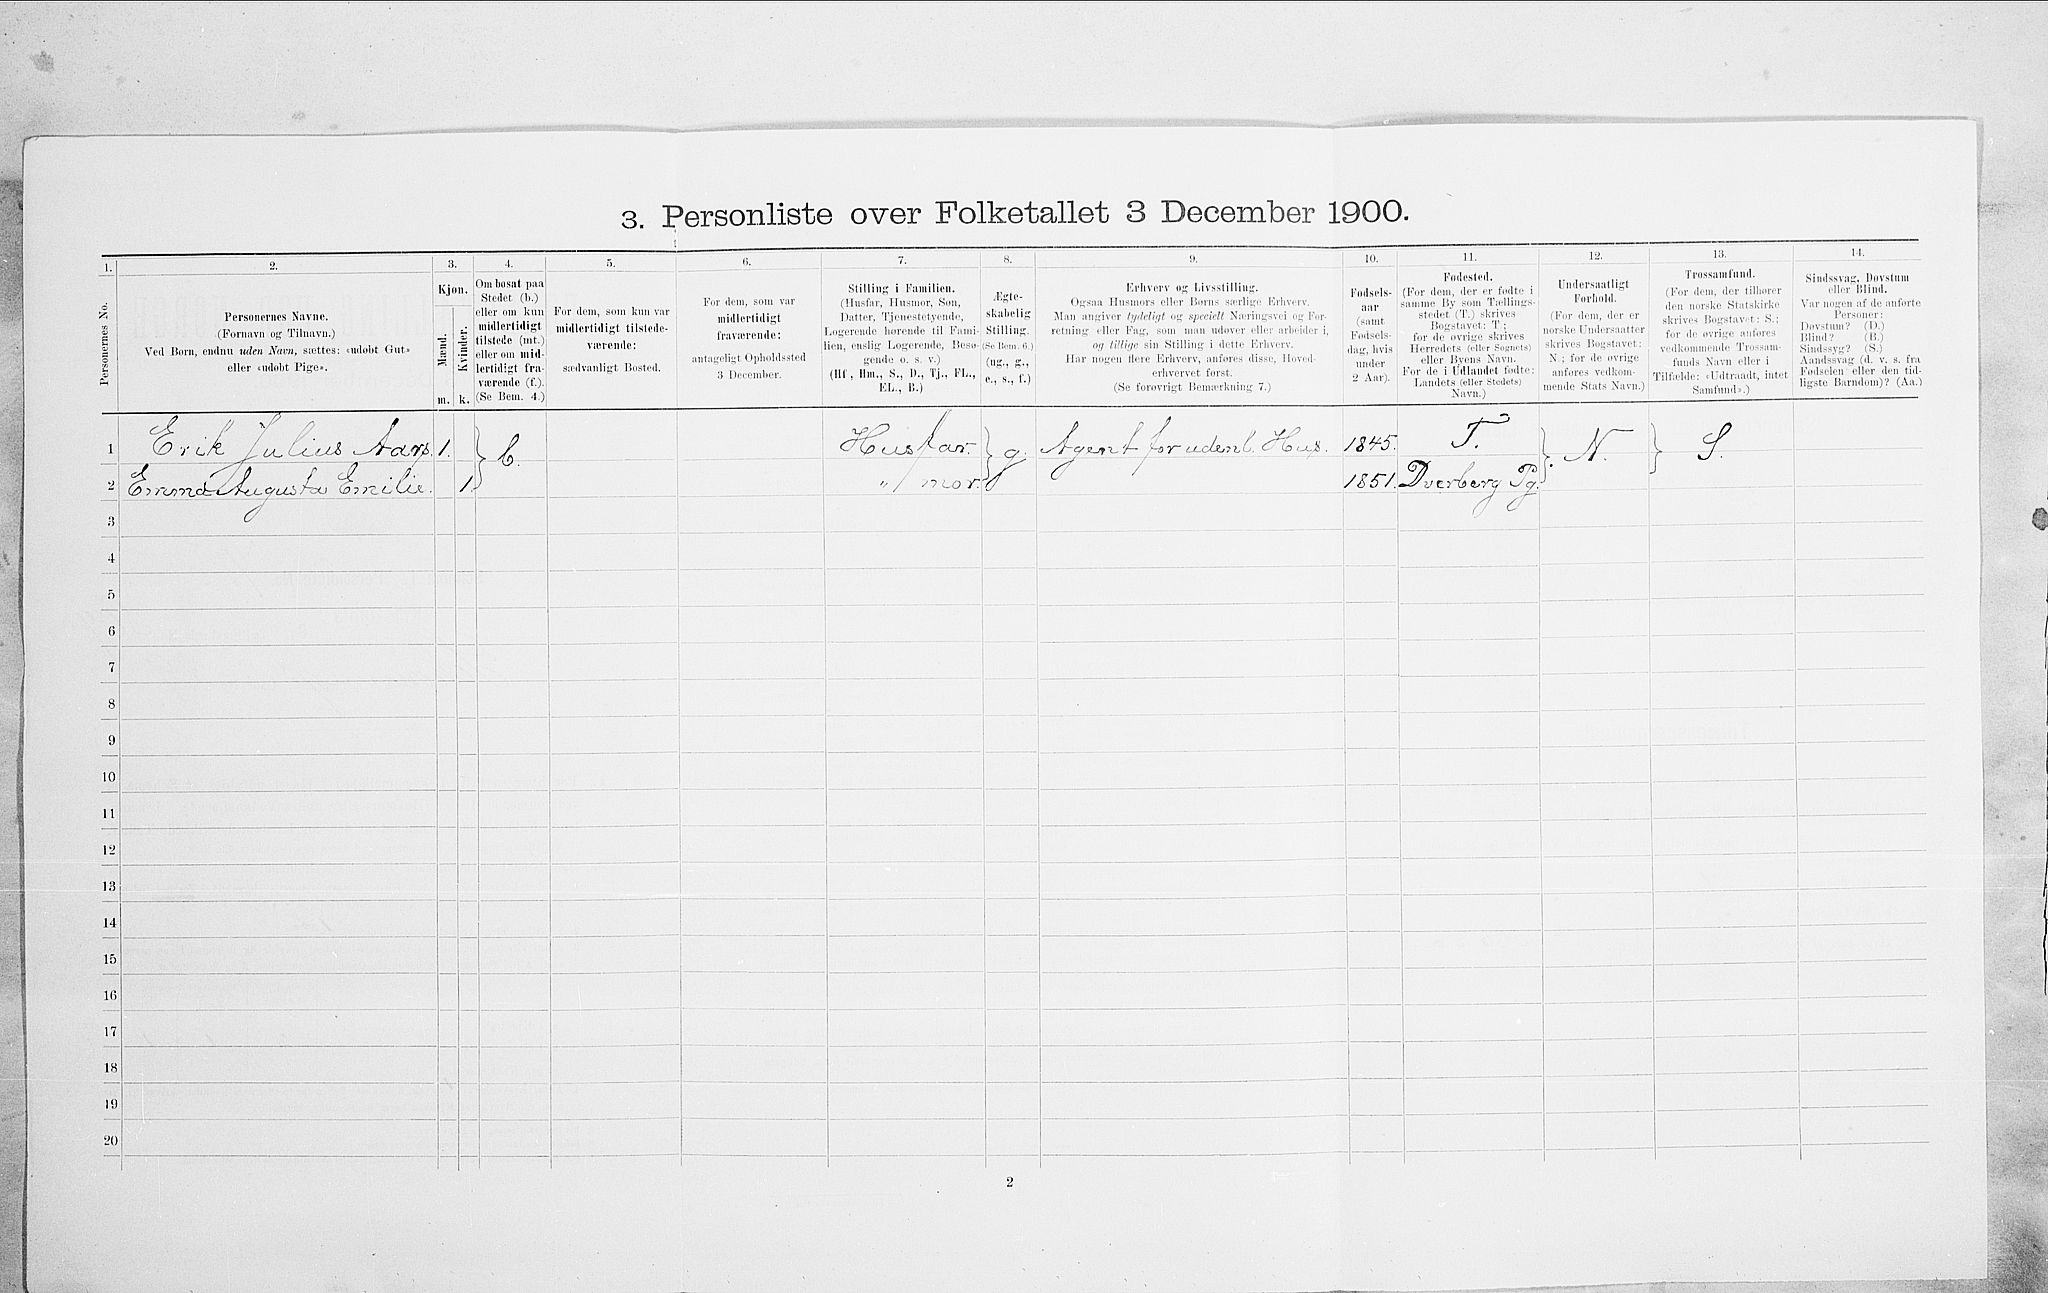 3. Personliste over Folketallet 3 December 1900.
1. 2. 3. 4. 5. 6. 7. 8. 9. 10. 11. 12. 13. 14.
Personernes No.
Personernes Navne.
(Fornavn og Tilnavn.)
Ved Børn, endnu uden Navn, sættes: «udøbt Gut»
eller «udøbt Pige».
Kjøn.
Mænd.
Kvinder.
m. k.
Om bosat paa
Stedet (b.)
eller om kun
midlertidigt
tilstede (mt.)
eller om mid-
lertidigt fra-
værende (f.).
(Se Bem. 4.)
For dem, som kun var
midlertidigt tilstede-
værende:
sædvanligt Bosted.
For dem, som var
midlertidigt
fraværende:
antageligt Opholdssted
3 December.
Stilling i Familien.
(Husfar, Husmor, Søn,
Datter, Tjenestetyende,
Logerende hørende til Fami-
lien, enslig Logerende, Besø-
gende o. s. v.)
(Hf, Hm., S., D., Tj., FL.,
EL., B.)
Ægte-
skabelig
Stilling.
(Se Bem. 6.)
(ug., g.,
e., s., f.)
Erhverv og Livsstilling.
Ogsaa Husmors eller Børns særlige Erhverv.
Man angiver tydeligt og specielt Næringsvei og For-
retning eller Fag, som man udøver eller arbeider i,
og tillige sin Stilling i dette Erhverv.
Har nogen flere Erhverv, anføres disse, Hoved-
erhvervet først.
(Se forøvrigt Bemærkning 7.)
Fødsels-
aar
(samt
Fødsels-
dag, hvis
under
2 Aar).
Fødested.
(For dem, der er fødte i
samme By som Tællings-
stedet (T.) skrives
Bogstavet: T.;
for de øvrige skrives
Herredets (eller Sognets)
eller Byens Navn.
For de i Udlandet fødte:
Landets (eller Stedets)
Navn.)
Undersaatligt
Forhold.
(For dem, der er
norske Undersaatter
skrives Bogstavet:
N.; for de øvrige
anføres vedkom-
mende Stats Navn.)
Trossamfund.
(For dem, der tilhører
den norske Statskirke
skrives Bogstavet: S.;
for de øvrige anføres
vedkommende Trossam-
funds Navn eller i
Tilfælde: «Udtraadt, intet
Samfund».)
Sindssvag, Døvstum
eller Blind.
Var nogen af de anførte
Personer:
Døvstum? (D.)
Blind? (B.)
Sindssyg? (S.)
Aandssvag (d. v. s. fra
Fødselen eller den tid-
ligste Barndom)? (Aa.)
1 Erik Julius Aars. 1. b. Husfar. g. Agent for udenl. Hus. 1845. T. N. S.
2 Emma Augusta Emilie. 1 „ mor. 1851. Dverberg Pg.
3
4
5
6
7
8
9
10
11
12
13
14
15
16
17
18
19
20
2